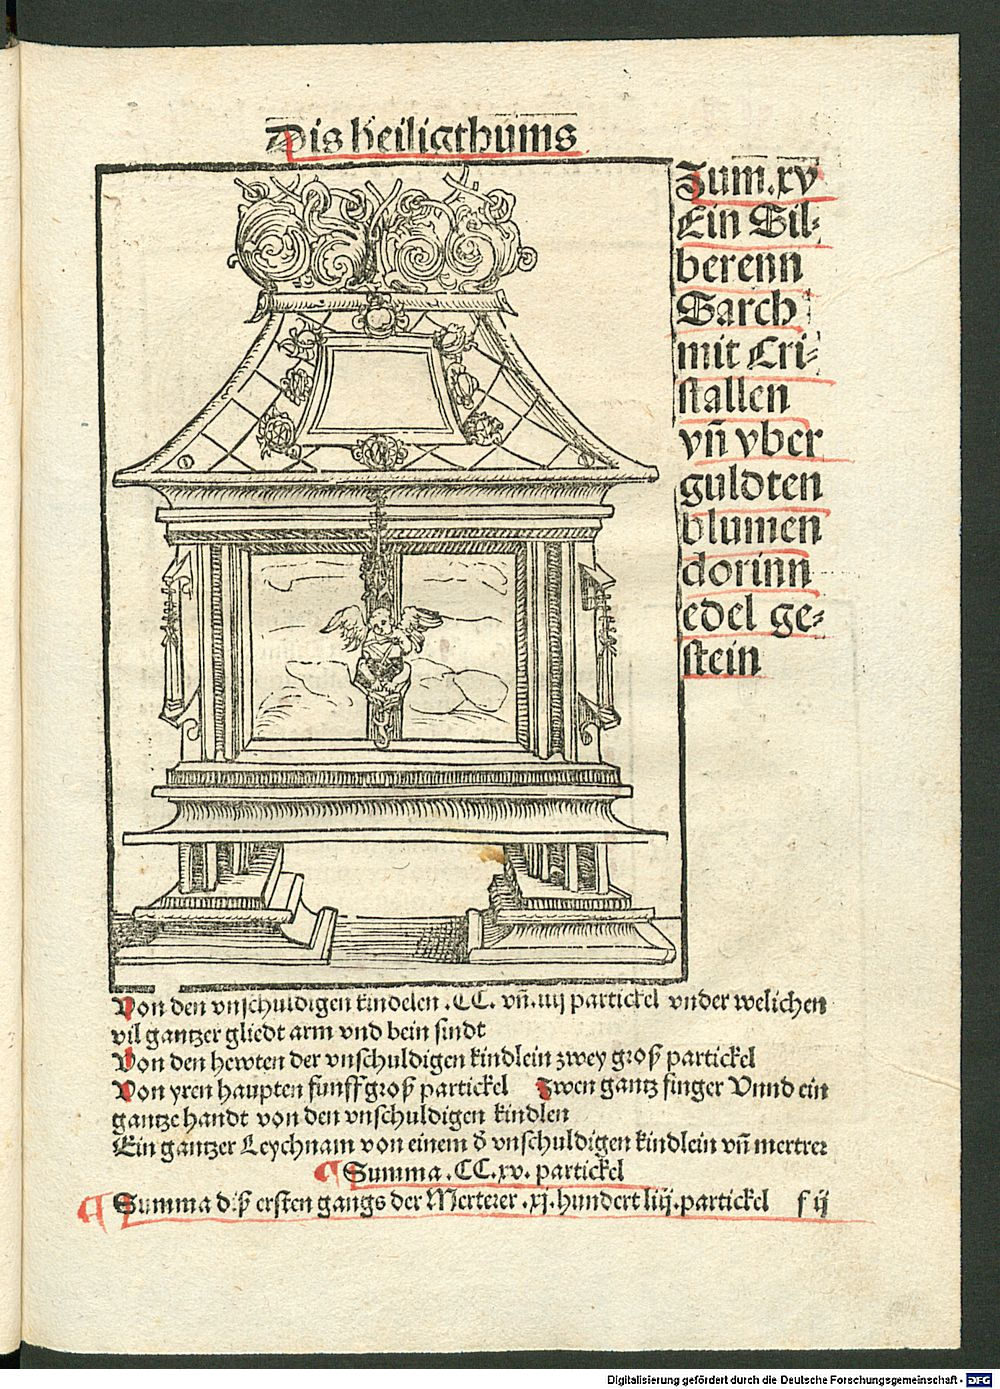 Dis heiligthums
Zum .xv
Ein Sil⸗
berenn
Sarch
mit Cri⸗
stallen
vñ vber
guldten
blumen
dorinn
edel ge⸗
stein
Von den vnschuldigen kindelen .CC. vñ. iiij partickel vnder welichen
vil gantzer gliedt arm vnd bein sindt
Von den hewten der vnschuldigen kindlein zwey groß partickel
Von yren haupten funff groß partickel Zwen gantz finger Vnnd ein
gantze handt von den vnschuldigen kindlen
Ein gantzer Leychnam von einem d̾ vnschuldigen kindlein vñ mertrer
¶ Summa .CC.xv. partickel
¶ Summa diß ersten gangs der Merterer .xj. hundert liij. partickel f ij
Digitalisierung gefördert durch die Deutsche Forschungsgemeinschaft - DFG